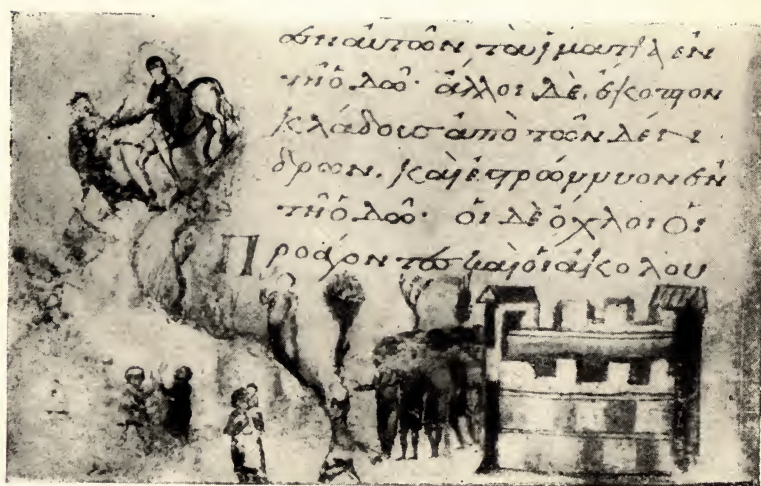 σαν αὐτῶν τὰ ἱμάτια ἐν
τῆ ὁδῶ· ἄλλοι δὲ, ἔκοπτον
κλάδους ἀπὸ τῶν δέν
δρων. καὶ ἐστρώννυον ἐν
τῆ ὁδῶ· οἱ δὲ ὄχλοι οἱ
προάγοντες καὶ οἱ ἀκολου